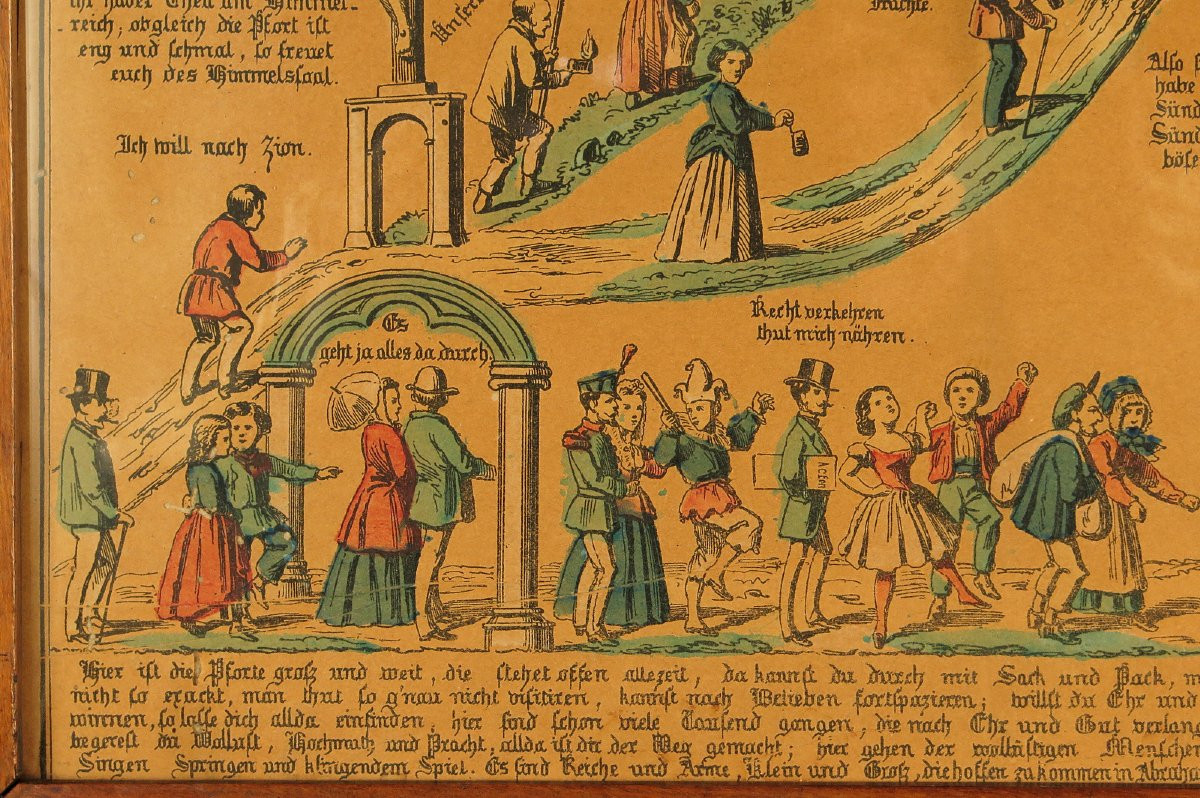 ihr habet Theil am Himmel-
reich; obgleich die Pfort ist
eng und schmal, so freuet
euch des Himmelssaal.
Ich will nach Zion.
Früchte.
Also
habe
Sünd
Sünd
böse
Es
geht ja alles da durch.
Recht verkehren
thut mich nähren.
ACTEN
Hier ist die Pforte groß und weit, die stehet offen allezeit, da kannst du durch mit Sack und Pack, m
nicht so exackt, man thut so g'nau nicht visitiren, kannst nach Belieben fortspazieren; willst du Ehr und
winnen, so lasse dich allda einfinden; hier sind schon viele Tausend gangen, die nach Ehr und Gut verlang
begerest du Wollust, Hochmuth und Pracht; allda ist dir der Weg gemacht; hier gehen der wollüstigen Menschen
Singen Springen und klingendem Spiel. Es sind Reiche und Arme, Klein und Groß, die hoffen zu kommen in Abraha